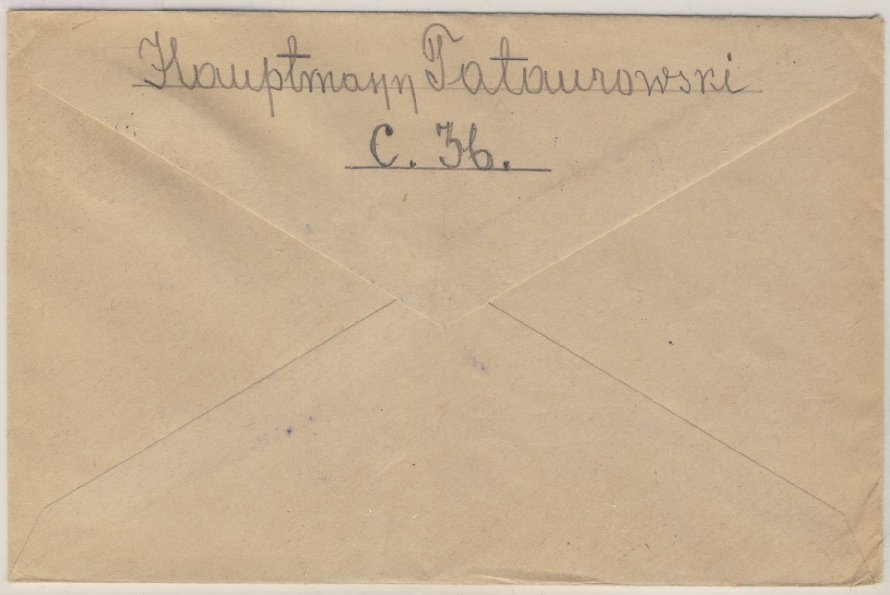 Hauptmann Tataurowski
C. 36.